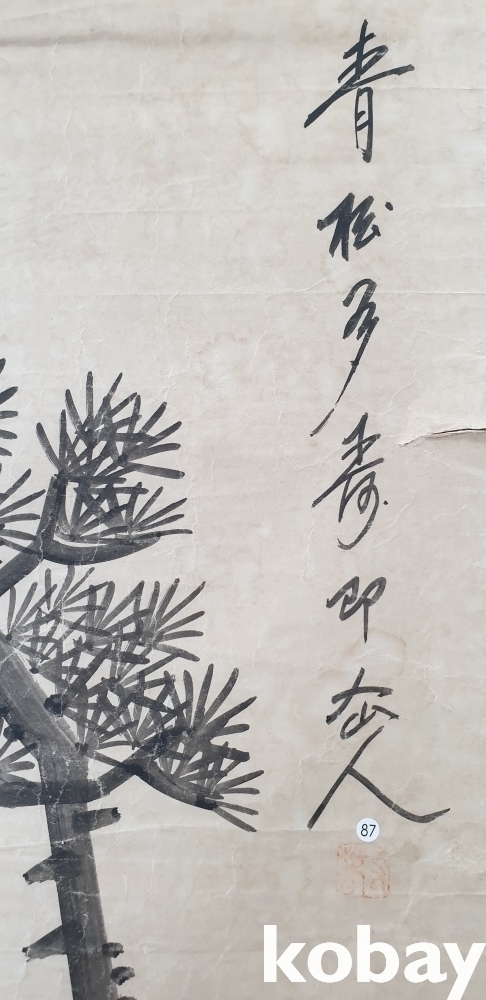 青松多壽即仚人
87
kobay